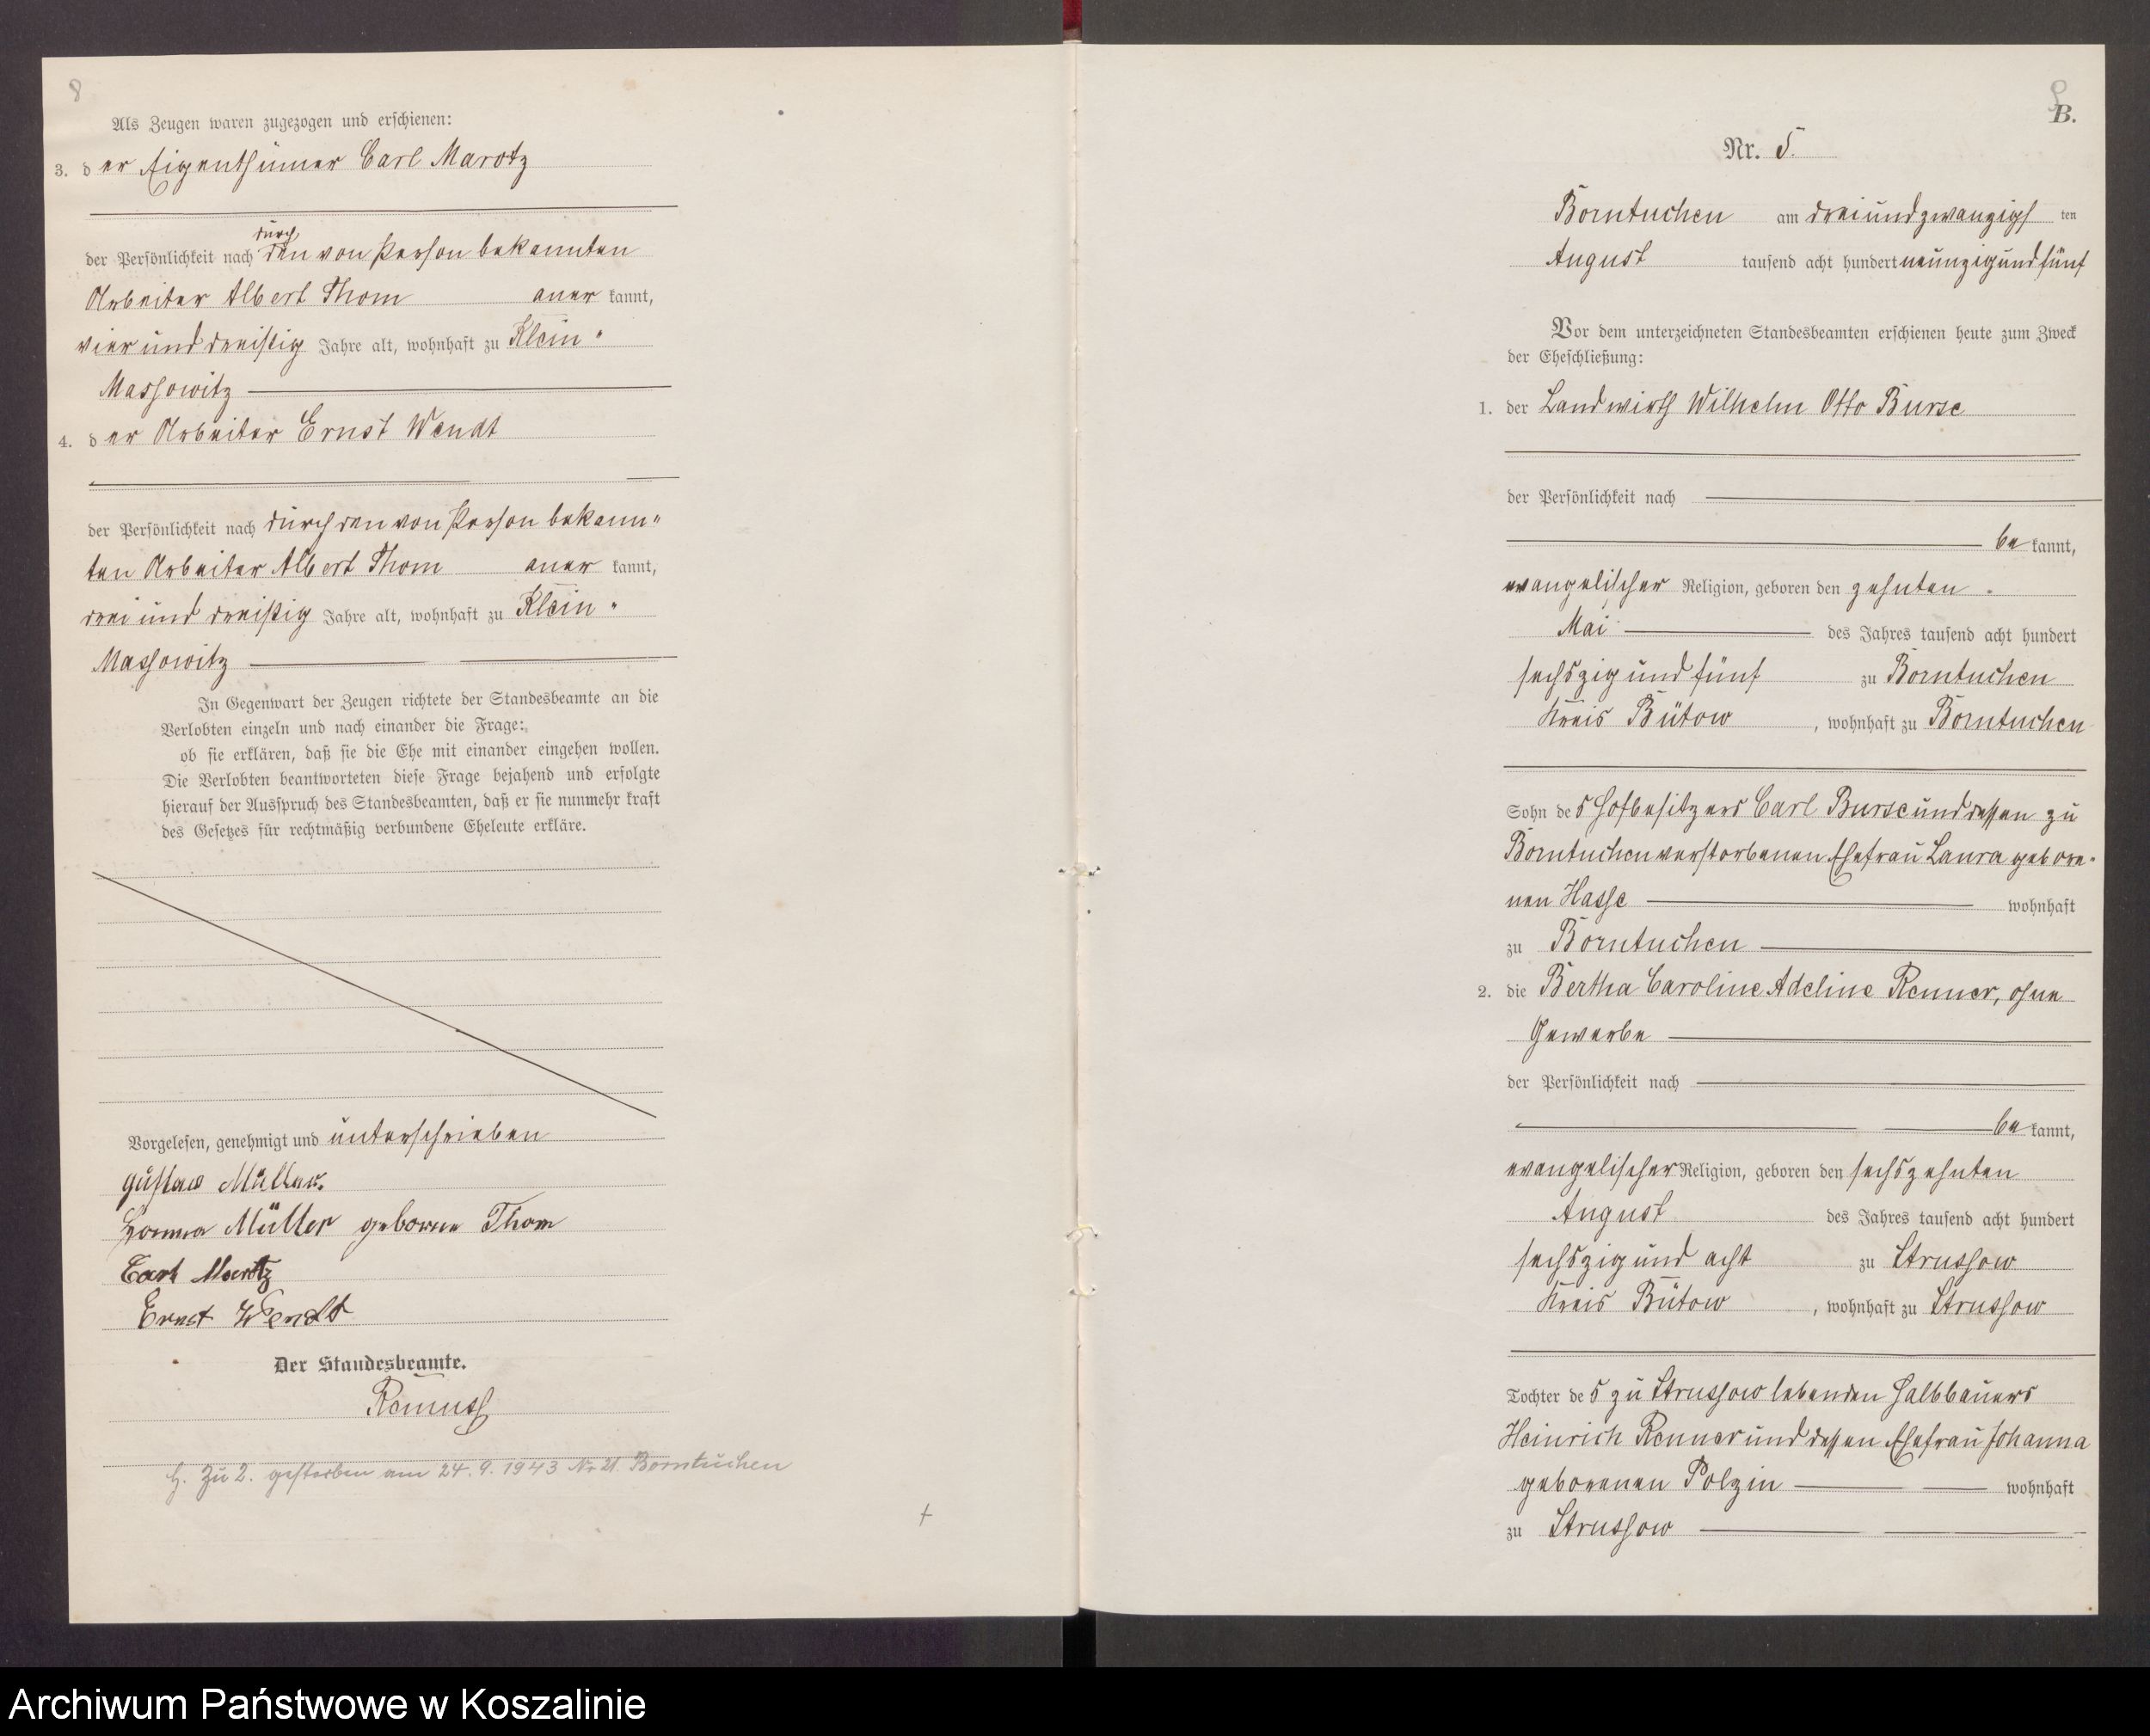 8
Als Zeugen waren zugezogen und erschienen:
3. der Eigenthümer Carl Marotz
durch
der Persönlichkeit nach den von Person bekannten
Arbeiter Albert Thom anerkannt,
vier und dreißig Jahre alt, wohnhaft zu Klein-
Massowitz
4. der Arbeiter Ernst Wendt
der Persönlichkeit nach durch den von Person bekann-
ten Arbeiter Albert Thom anerkannt,
drei und dreißig Jahre alt, wohnhaft zu Klein-
Massowitz
In Gegenwart der Zeugen richtete der Standesbeamte an die
Verlobten einzeln und nach einander die Frage:
ob sie erklären, daß sie die Ehe mit einander eingehen wollen.
Die Verlobten beantworteten diese Frage bejahend und erfolgte
hierauf der Ausspruch des Standesbeamten, daß er sie nunmehr kraft
des Gesetzes für rechtmäßig verbundene Eheleute erkläre.
Vorgelesen, genehmigt und unterschrieben
Gustav Müller.
Müller geborene Thom
Carl Marotz
Ernst Wendt
Der Standesbeamte.
Remuss
H. Zu 2. gestorben am 24.9.1943 Nr 21 Borntuchen
9
B.
Nr. 5.
Borntuchen am dreiundzwanzigsten
August tausend acht hundert neunzig und fünf
Vor dem unterzeichneten Standesbeamten erschienen heute zum Zweck
der Eheschließung:
1. der Landwirth Wilhelm Otto Burse
der Persönlichkeit nach
bekannt,
evangelischer Religion, geboren den zehnten
Mai des Jahres tausend acht hundert
sechszig und fünf zu Borntuchen
Kreis Bütow, wohnhaft zu Borntuchen
Sohn des Hofbesitzers Carl Burse und dessen zu
Borntuchen verstorbenen Ehefrau Laura gebore-
nen Hasse wohnhaft
zu Borntuchen
2. die Bertha Caroline Adeline Renner, ohne
Gewerbe
der Persönlichkeit nach
bekannt,
evangelischer Religion, geboren den sechszehnten
August des Jahres tausend acht hundert
sechszig und acht zu Strussow
Kreis Bütow, wohnhaft zu Strussow
Tochter des zu Strussow lebenden Halbbauers
Heinrich Renner und dessen Ehefrau Johanna
geborenen Polzin wohnhaft
zu Strussow
Archiwum Państwowe w Koszalinie